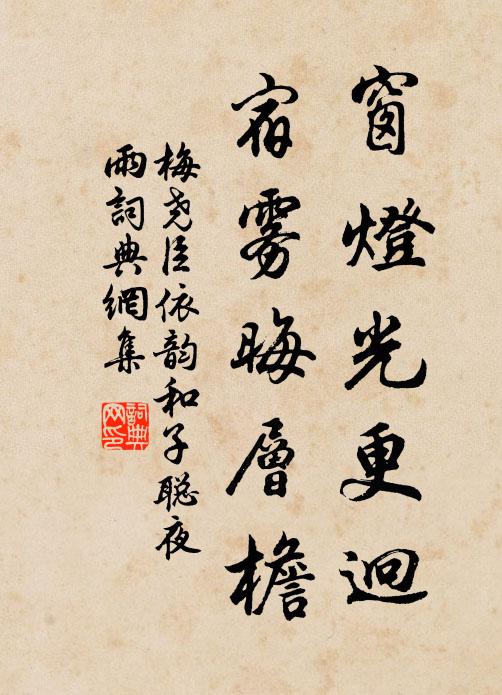 窗燈光更迥
宿雾晦層檐
梅尭臣依韵和子聡夜
雨詞典網集
詞典
网印